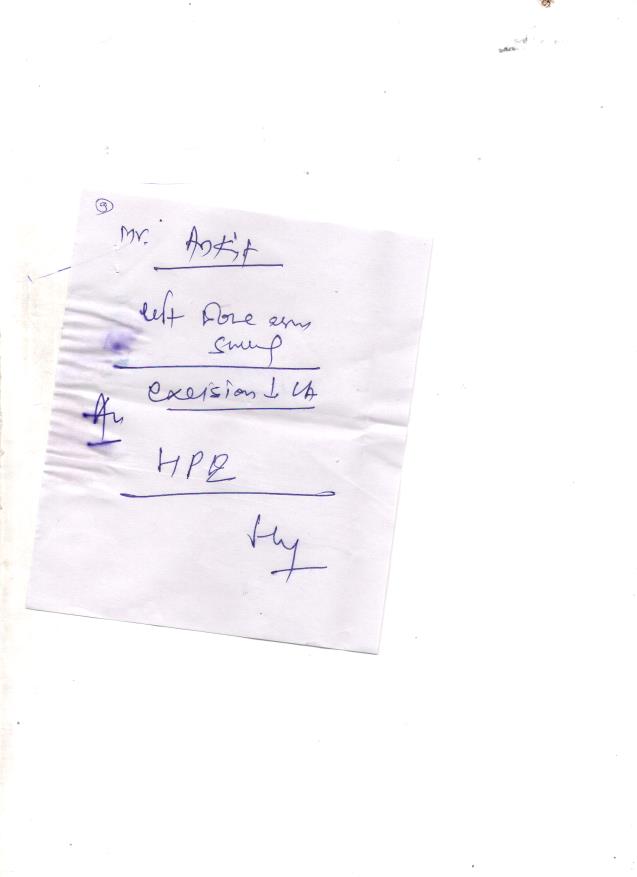 9
Mr. Ankit
left fore arm
swelling
excision ↓ LA
HPE